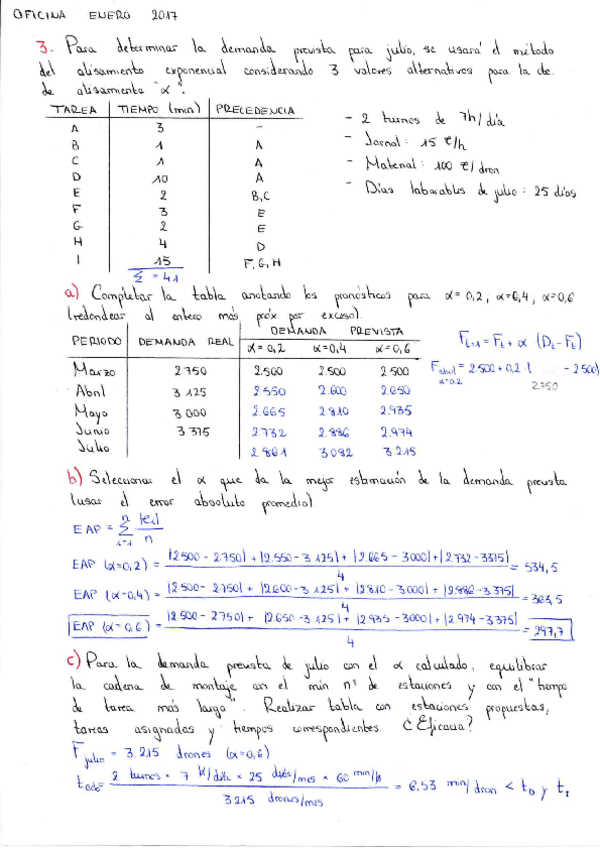 OFICINA ENERO 2017
3. Para determinar la demanda prevista para julio, se usará el método
del alisamiento exponencial considerando 3 valores alternativos para la cte.
de alisamiento "α".
TAREA TIEMPO (min) PRECEDENCIA
A 3 -
B 1 A
C 1 A
D 10 A
E 2 B,C
F 3 E
G 2 E
H 4 D
I 15 F,G,H
Σ = 41
- 2 turnos de 7h/día
- Jornal: 15 €/h
- Material: 100 €/dron
- Días laborables de julio: 25 días
a) Completar la tabla anotando los pronósticos para α=0,2, α=0,4, α=0,6
(redondear al entero más próx por exceso).
PERIODO DEMANDA REAL DEMANDA PREVISTA
α=0,2 α=0,4 α=0,6
Marzo 2750 2.500 2.500 2.500
Abril 3 125 2.550 2.600 2.650
Mayo 3 000 2.665 2810 2.935
Junio 3 375 2.732 2.886 2.974
Julio 2.861 3082 3.215
Ft+1 = Ft + α (Dt - Ft)
F abril α=0,2 = 2.500 + 0,2 · ( - 2500)
2.750
b) Seleccionar el α que da la mejor estimación de la demanda prevista
(usar el error absoluto promedio)
EAP = Σ i=1 n |ei| / n
EAP (α=0,2) = |2500 - 2750| + |2.550 - 3.125| + |2.665 - 3000| + |2.732 - 3375| / 4 = 534,5
EAP (α=0,4) = |2.500 - 2750| + |2.600 - 3.125| + |2810 - 3.000| + |2.886 - 3.375| / 4 = 363,5
EAP (α=0,6) = |2.500 - 2.750| + |2.650 - 3125| + |2.935 - 3000| + |2.974 - 3.375| / 4 = 297,7
c) Para la demanda prevista de julio con el α calculado, equilibrar
la cadena de montaje con el min nº de estaciones y con el "tiempo
de tarea más largo". Realizar tabla con estaciones propuestas,
tareas asignadas y tiempos correspondientes. ¿Eficacia?
F julio = 3.215 drones (α=0,6)
t ciclo = 2 turnos × 7 h/día × 25 días/mes × 60 min/h / 3215 drones/mes = 6,53 min/dron < tD y tI